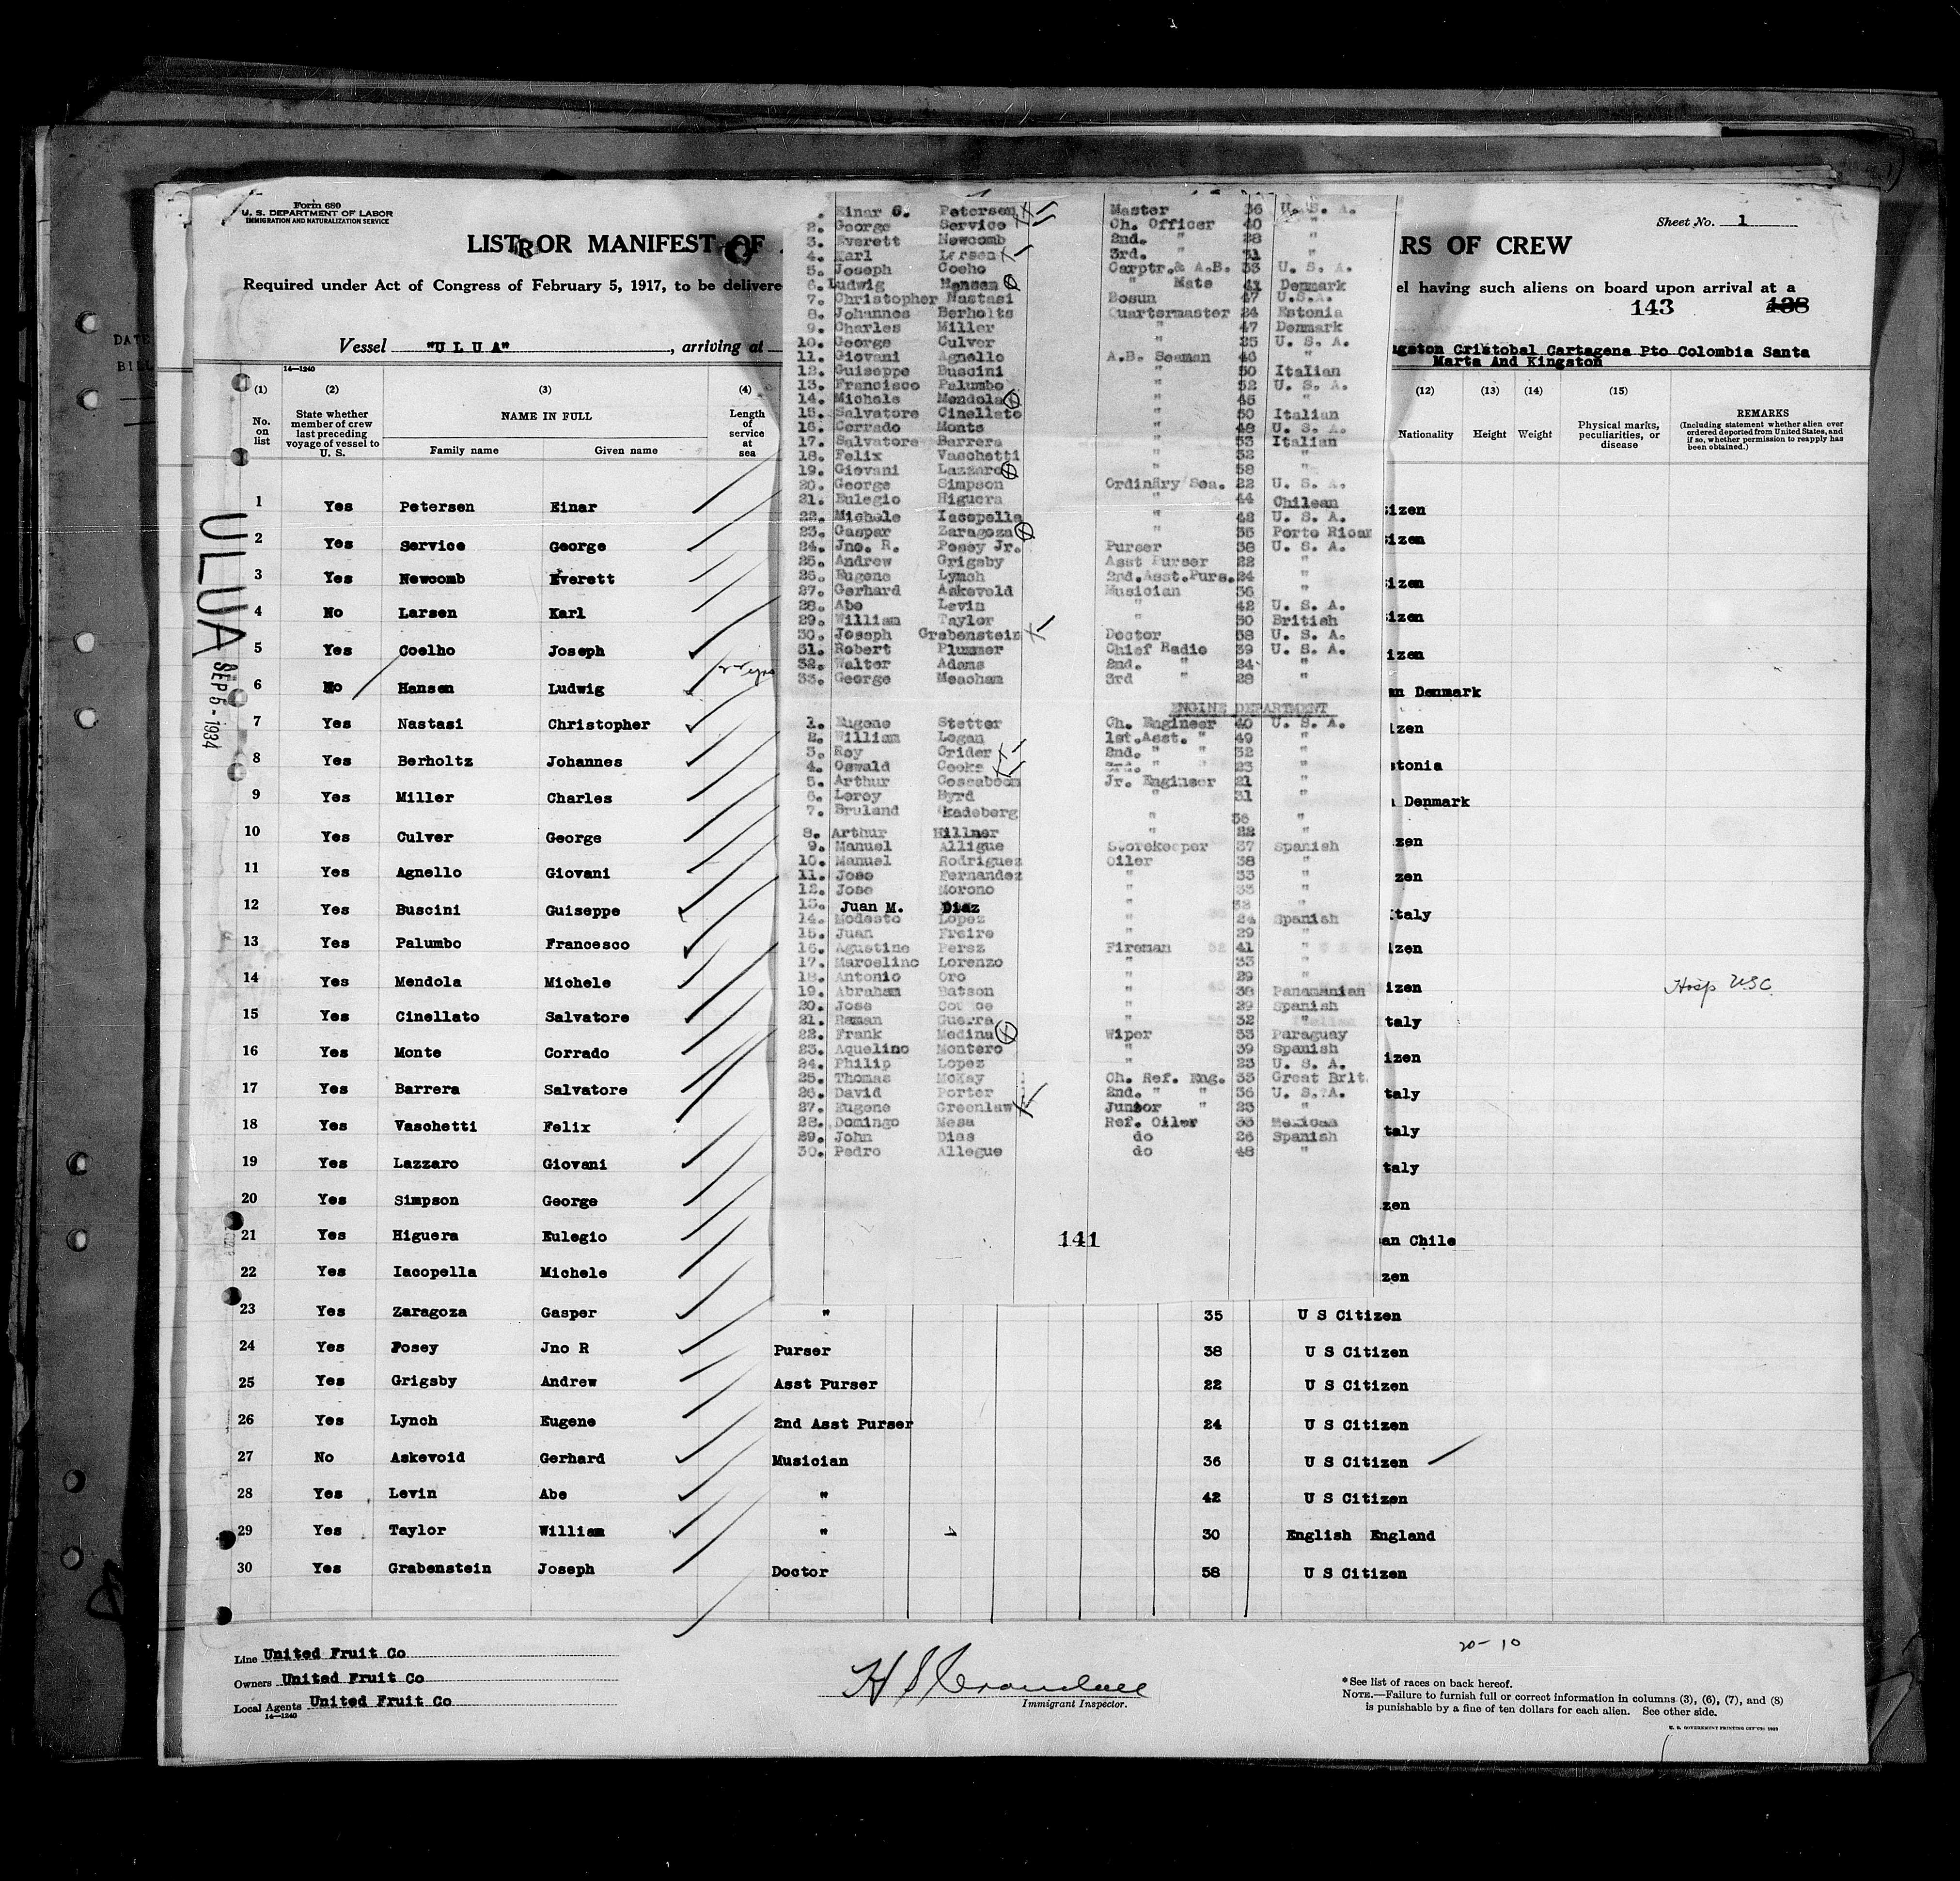 Form 680
U. S. DEPARTMENT OF LABOR
IMMIGRATION AND NATURALIZATION SERVICE
Sheet No. 1
LIST OR MANIFEST OF
RS OF CREW
Required under Act of Congress of February 5, 1917, to be delivere
el having such aliens on board upon arrival at a
143 138
Vessel "U L U A", arriving at
gston Cristobal Cartagena Pto Colombia Santa
Marta And Kingston
14—1240
(1) (2) (3) (4) (12) (13) (14) (15)
No. on list
State whether member of crew last preceding voyage of vessel to U. S.
NAME IN FULL
Family name Given name
Length of service at sea
Nationality Height Weight
Physical marks, peculiarities, or disease
REMARKS
(Including statement whether alien ever ordered deported from United States, and if so, whether permission to reapply has been obtained.)
ULUA
SEP 5 - 1934
1 Yes Petersen Einar izen
2 Yes Service George izen
3 Yes Newcomb Everett izen
4 No Larsen Karl izen
5 Yes Coelho Joseph izen
6 No Hansen Ludwig an Denmark
7 Yes Nastasi Christopher izen
8 Yes Berholtz Johannes stonia
9 Yes Miller Charles Denmark
10 Yes Culver George zen
11 Yes Agnello Giovani zen
12 Yes Buscini Guiseppe taly
13 Yes Palumbo Francesco izen
14 Yes Mendola Michele izen Hosp USC
15 Yes Cinellato Salvatore taly
16 Yes Monte Corrado izen
17 Yes Barrera Salvatore taly
18 Yes Vaschetti Felix taly
19 Yes Lazzaro Giovani taly
20 Yes Simpson George zen
21 Yes Higuera Eulegio an Chile
22 Yes Iacopella Michele zen
23 Yes Zaragoza Gasper " 35 U S Citizen
24 Yes Posey Jno R Purser 38 U S Citizen
25 Yes Grigsby Andrew Asst Purser 22 U S Citizen
26 Yes Lynch Eugene 2nd Asst Purser 24 U S Citizen
27 No Askevoid Gerhard Musician 36 U S Citizen
28 Yes Levin Abe " 42 U S Citizen
29 Yes Taylor William " 30 English England
30 Yes Grabenstein Joseph Doctor 58 U S Citizen
. Einar G. Petersen Master 36 U. S. A.
2. George Service Ch. Officer 40 "
3. Everett Newcomb 2nd. " 28 "
4. Karl Larsen 3rd. " 31 "
5. Joseph Coeho Carptr.& A.B. 33 U. S. A.
6. Ludwig Hansen " Mate 41 Denmark
7. Christopher Nastasi Bosun 47 U.S.A.
8. Johannes Berholts Quartermaster 24 Estonia
9. Charles Miller " 47 Denmark
10. George Culver " 25 U. S. A.
11. Giovani Agnello A.B. Seaman 46 "
12. Guiseppe Buscini " 50 Italian
13. Francisco Palumbo " 52 U. S. A.
14. Michele Mendola " 45 "
15. Salvatore Cinellato " 50 Italian
16. Corrado Monte " 48 U. S. A.
17. Salvatore Barrera " 53 Italian
18. Felix Vaschetti " 32 "
19. Giovani Lazzaro " 58 "
20. George Simpson Ordinary Sea. 22 U. S. A.
21. Eulegio Higuera " 44 Chilean
22. Michele Iacopella " 42 U. S. A.
23. Gaspar Zaragoza " 35 Porto Rican
24. Jno. R. Posey Jr. Purser 38 U. S. A.
25. Andrew Grigsby Asst Purser 22 "
26. Eugene Lynch 2nd.Asst.Purs. 24 "
27. Gerhard Askevold Musician 36 "
28. Abe Levin " 42 U. S. A.
29. William Taylor " 30 British
30. Joseph Grabenstein Doctor 58 U. S. A.
31. Robert Plummer Chief Radio 39 U. S. A.
32. Walter Adams 2nd. " 24 "
33. George Meacham 3rd " 28 "
ENGINE DEPARTMENT
1. Eugene Stetter Ch. Engineer 40 U. S. A.
2. William Logan 1st.Asst. " 49 "
3. Roy Crider 2nd. " " 32 "
4. Oswald Cooke 3rd. " " 23 "
5. Arthur Coseaboom Jr. Engineer 21 "
6. Leroy Byrd " 31 "
7. Bruland Skadeberg " 36 "
8. Arthur Hillner " 22 "
9. Manuel Alligue Storekeeper 37 Spanish
10. Manuel Rodriguez Oiler 38 "
11. Jose Fernandez " 33 "
12. Jose Morono " 33 "
13. Juan M. Diaz " 32 "
14. Modesto Lopez " 24 Spanish
15. Juan Freire " 29 "
16. Agustino Perez Fireman 41 "
17. Marcelino Lorenzo " 33 "
18. Antonio Oro " 29 "
19. Abraham Batson " 38 Panamanian
20. Jose " 29 Spanish
21. Raman Guerra " 32 "
22. Frank Medina Wiper 33 Paraguay
23. Aquelino Montero " 39 Spanish
24. Philip Lopez " 23 U. S. A.
25. Thomas McKay Ch. Ref. Eng. 33 Great Brit.
26. David Porter 2nd. " " 36 U. S. A.
27. Eugene Greenlaw Junior " 23 "
28. Domingo Mesa Ref. Oiler 33 Mexican
29. John Dias do 26 Spanish
30. Pedro Allegue do 48 "
141
Line United Fruit Co
Owners United Fruit Co
Local Agents United Fruit Co
14—1240
H S Crandall
Immigrant Inspector.
20-10
* See list of races on back hereof.
NOTE.—Failure to furnish full or correct information in columns (3), (6), (7), and (8)
is punishable by a fine of ten dollars for each alien. See other side.